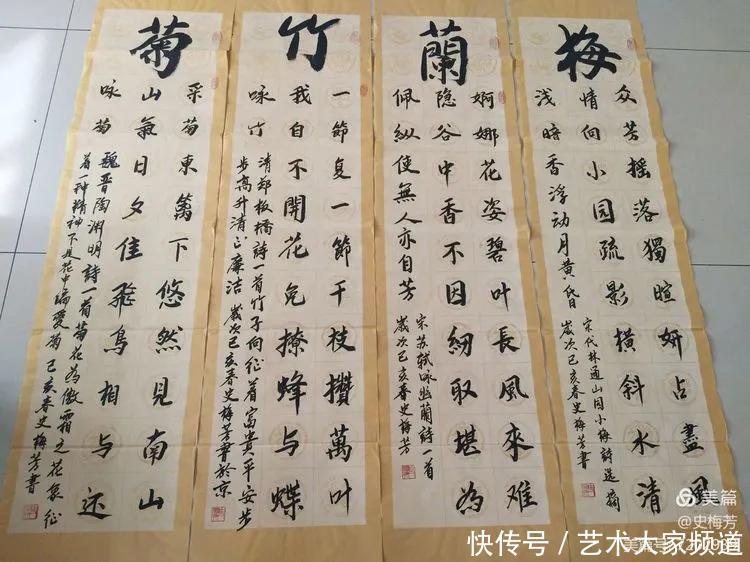 梅
众芳摇落獨暄妍占盡風
情向小园疏影横斜水清
浅暗香浮动月黄昏
宋代林逋山园小梅詩选摘
歲次己亥春史梅芳書
蘭
婀娜花姿碧叶長風來难
隐谷中香不因紉取堪为
佩纵使無人亦自芳
宋苏轼咏幽蘭詩一首
歲次己亥春史梅芳
竹
一節复一節千枝攢萬叶
我自不開花免撩蜂与蝶
咏竹
清郑板橋詩一首竹子向征着富貴平安步
步高升清正廉洁 歲次己亥春史梅芳書於京
菊
采菊東篱下悠然見南山
山氣日夕佳飛鳥相与还
咏菊
魏晋陶渊明詩一首菊花为傲霜之花象征
着一种精神不是花中偏爱菊 己亥春史梅芳書
美篇
@史梅芳
美篇号
快传号 / 艺术大家频道